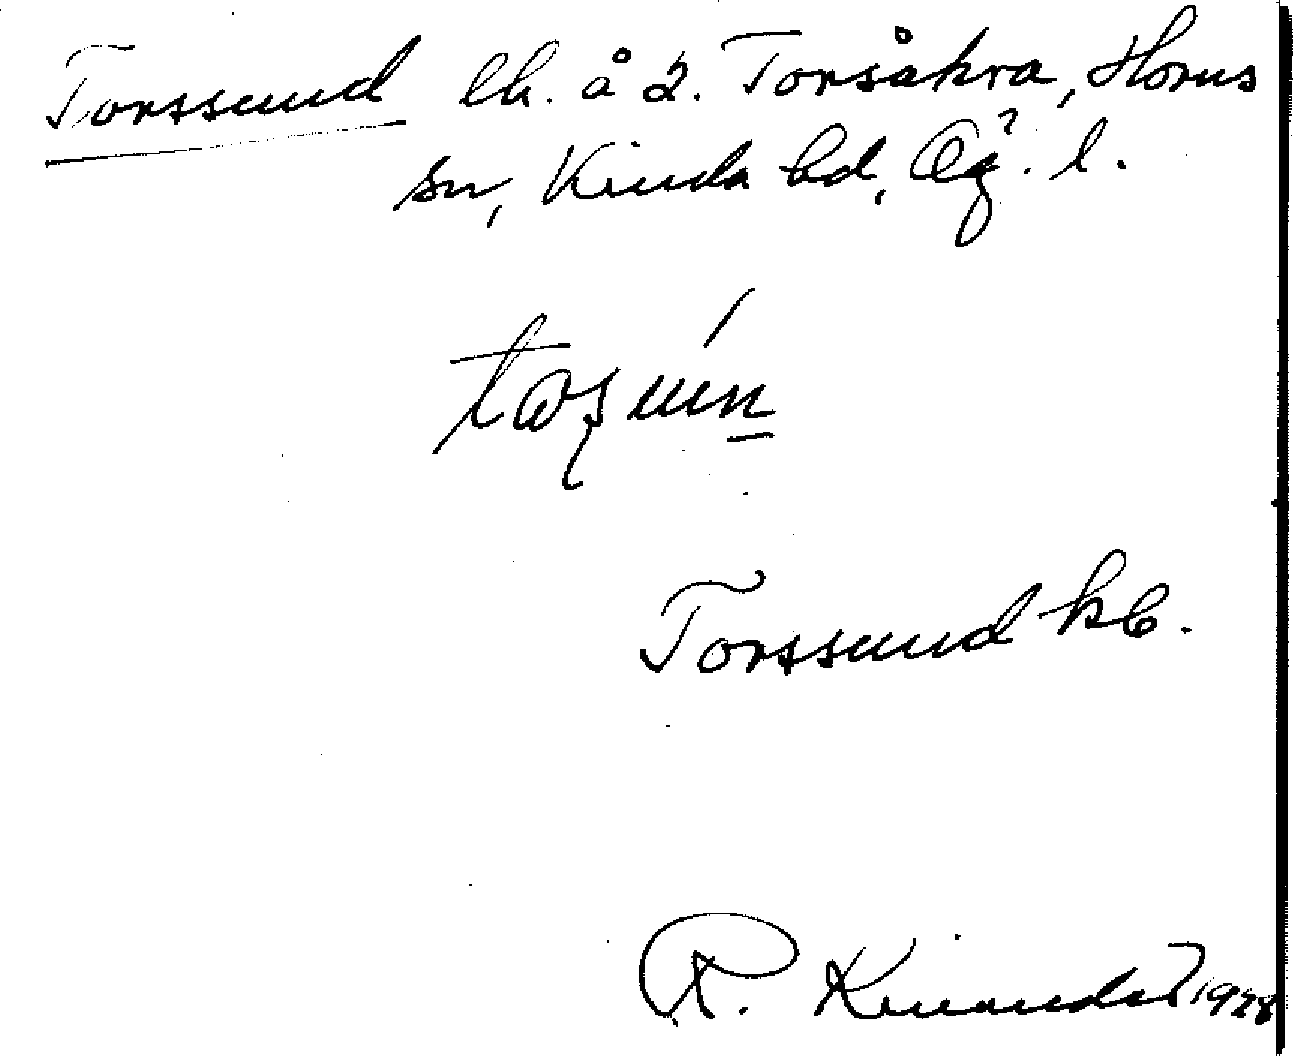 Torssund lh. å 2. Torsåkra, Horns
sn, Kinda hd, Ög. l.
Torssund kb.
R. Kinander 1928